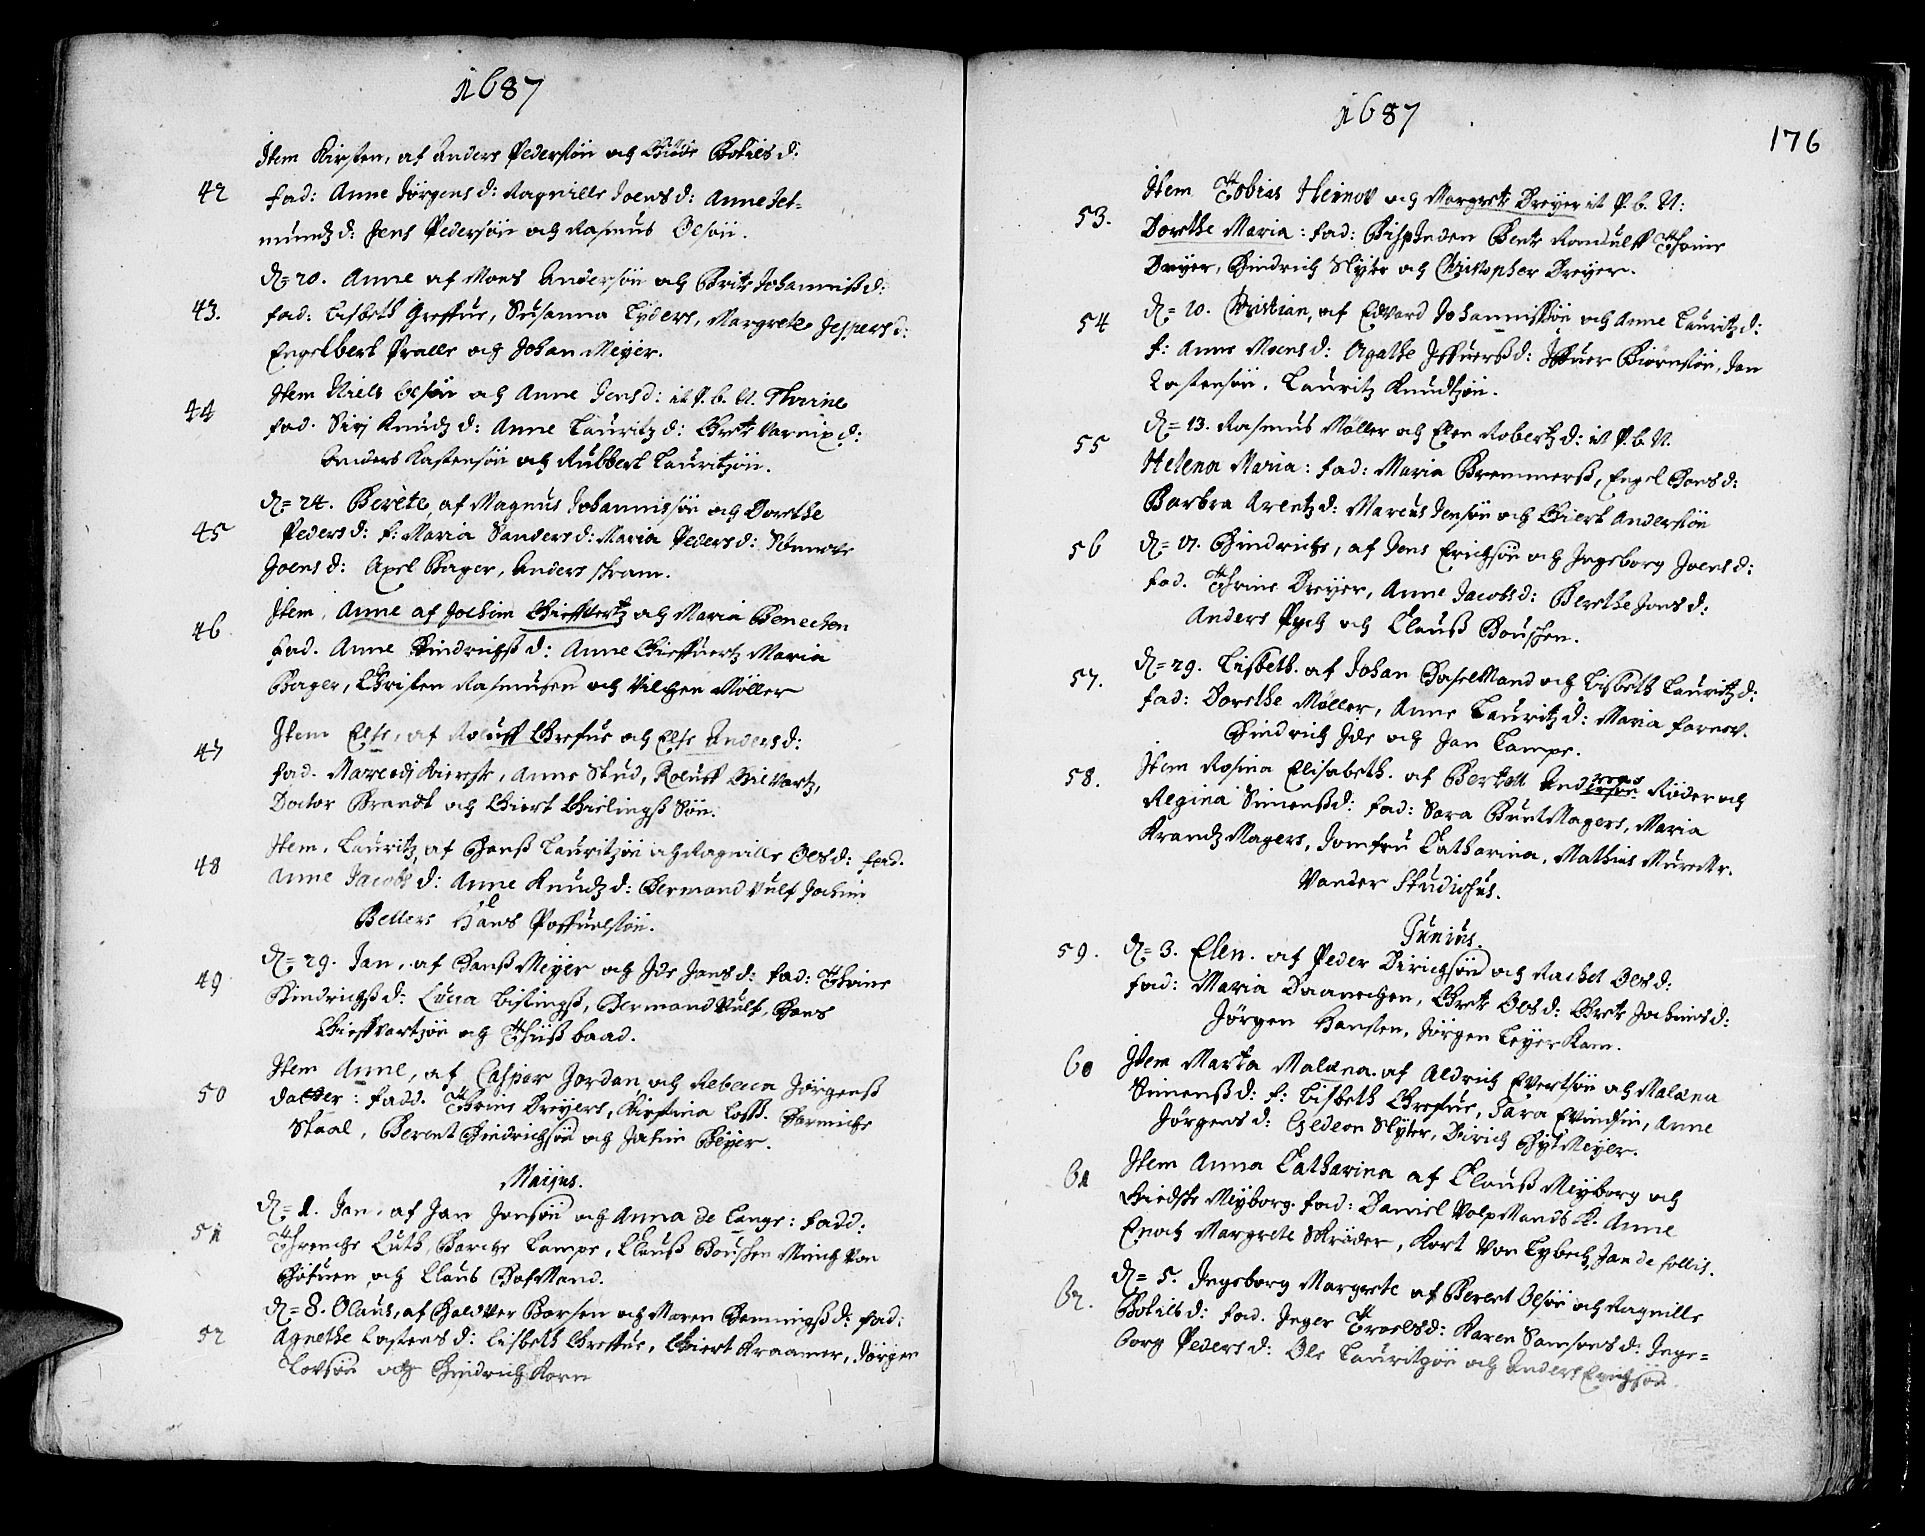 1687
Item Kirsten, af Anders Pedersøn och Giøde Botilsd:
42 fad: Anne Jørgensd: Ragnille Joensd: Anne Jet-
mundzd: Jens Pedersøn och Rasmus Olsøn.
D= 20. Anne af Mons Andersøn och Brite Johannisßd:
43. fad: Lisbeth Greffue, Susanna Lyders, Margrete Jespersd:
Engelbert Pralle och Johan Meyer.
Item Niels Olsøn och Anne Jensd: it P. b. N. Thrine
44 fad. Siri Knudzd: Anne Lauritzd: Grete Varnipd:
Anders Kastensøn och Rubbert Lauritzøn.
D= 24. Berete, af Magnus Johannissøn och Dorethe
45 Pedersd: f: Maria Sandersd: Maria Pedersd: Sønnove
Joensd: Axel Bager, Anders skram.
Item. Anne af Jochim Gieffuertz och Maria Benechen
46 fad. Anne Hindrichsßd: Anne Gieffuertz Maria
Bager, Christen Rasmusen och Vilchen Møller
Item Else, af Roluff Grefue och Else Andersd:
47 fad. Marredj Kierste, Anne Stud, Roluff Gilvartz,
Doctor Krandt och Giert Gislingß Søn.
Item. Lauritz, af Hanß Lauritzøn och Ragnille Olsd: fad.
48 Anne Jacobsd: Anne Knudzd: Hermand Vulf Jochim
Bellers Hans Poffuelsøn.
D= 29. Jan, af Hanß Meyer och Ide Jansd: fad: Thrine
49 Hindrichßd: Lucia Gislingß, Hermand Vulf, Hans
Gieffvartzøn och Thiiß baad.
Item Anne, af Casper Jordan och Rebecca Jørgenß
50 datter: fadd. Thrine Dreyers, Kirstina Losß. Harmiche
Staal, Berent Hindrichsøn och Jochim Beyer.
Maijus.
D= 1. Jan, af Jan Jansøn och Anna de Lange: fadd.
51 Threnche Luth, Barche Lampe, Clauß Bouschen Minch Von
Høfuen och Claus Hofmand.
D= 8. Olaus, af Haldver Borsen och Maren Hemmingßd: fad:
52 Agnethe Carstensd: Lisbeth Greffue, Giert Kraamer, Jørgen
Lovsøn och Hindrich Korn
1687
176
Item Tobias Heinov och Margrete Dreyer it P. b. N:
53. Dorethe Maria: fad: Bispinden Bente Randulff Thrine
Dreyer, Hindrich Slyter och Christopher Dreyer.
D= 10. Christian, af Edvard Johannisßøn och Anne Lauritzd:
54 f: Anne Monsd: Agathe Iffuersßd: Iffuer Biørnsøn, Jan
Castensøn. Lauritz Knudtzøn.
D= 13. Rasmus Møller och Elen Robertzd: it P. b. N.
55 Helena Maria: fad: Maria Bremmersß, Engel Hansd:
Barbra Arentzd: Marcus Jensøn och Giert Andersøn
56 D= 17. Hindrichs, af Jens Erichsøn och Ingeborg Joensd:
fad. Thrine Dreyer, Anne Jacobsd: Berethe Jonsd:
Anders Pych och Clauß Bouschen.
D= 29. Lisbeth. af Johan Haselmand och Lisbeth Lauritzd:
57. fad: Dorethe Møller, Anne Lauritzd: Maria farnov.
Hindrich Ide och Jan Lampe.
58. Item Rosina Elisabeth. af Bertell Andreas Røder och
Regina Simensßd: fad: Sara Buntmagers, Maria
Krandzmagers, Jomfru Catharina, Mathias Muremr.
Vander Studiosus.
Junius.
59. D= 3. Elen. af Peder Dirichsøn och Rachel Olsd:
fad: Maria Daanechen, Grete Olsd: Grete Jochimsd:
Jørgen Hansten, Jørgen Leyerkam.
60 Item Marta Malena. af Aldrich Evertsøn och Malena
Simensßd: f: Lisbeth Grefue, Sara Evindsin, Anne
Jørgensd: Gedeon Slyter, Dirich Hytmeyer.
61 Item Anna Catharina af Clauß Meyborg och
Giedske Meyborg. fad: Daniel Volpmands K. Anne
Enoch Margrete Skrøder, Kort Von Lybech, Jan de follis.
D= 5. Ingeborg Margrete af Berent Olsøn och Ragnille
62. Botilsd: fad. Inger Troelsd: Karen Samsonsd: Inge-
borg Pedersd: Ole Lauritzøn och Anders Erichsøn.